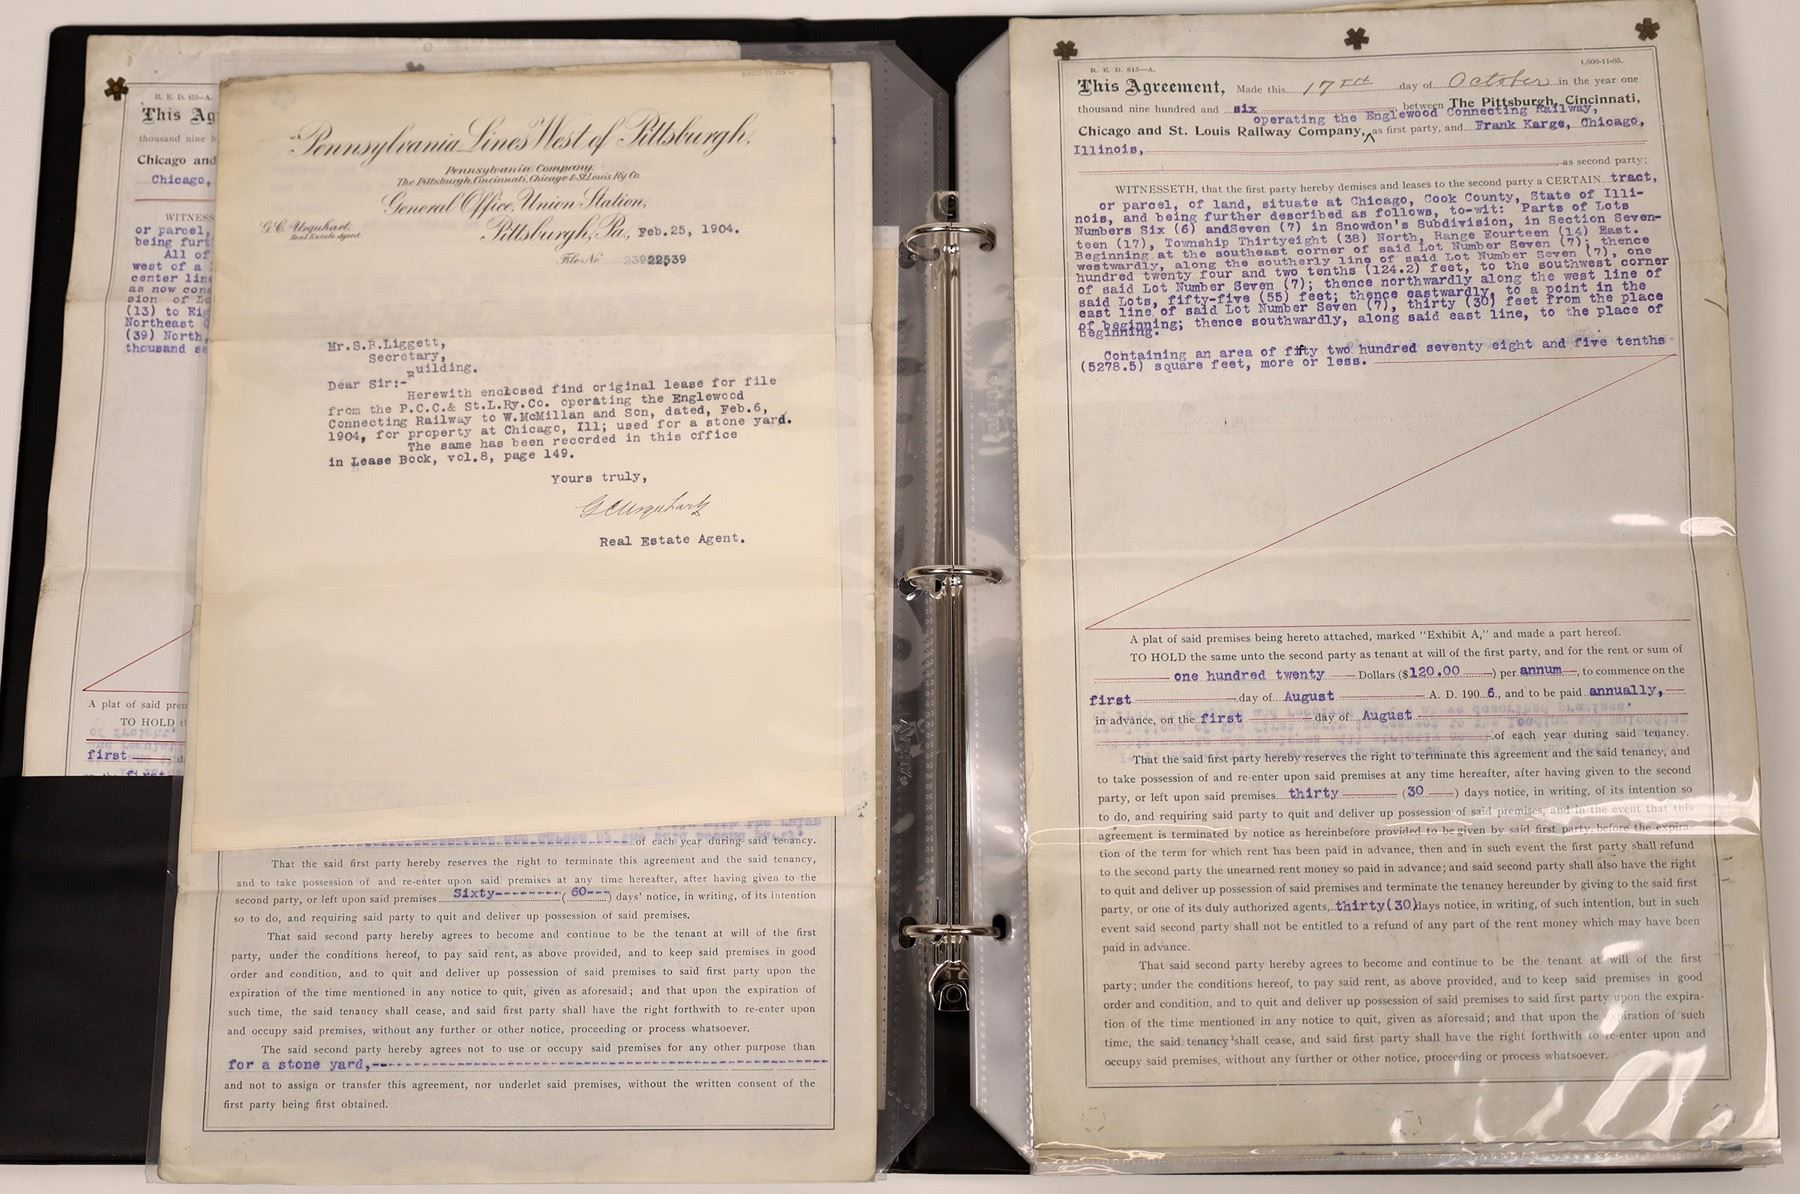 R. E. D. 815—A.
This Ag
thousand nine h
Chicago and
Chicago,
WITNESS
or parcel,
being furt
All of
west of a
center line
as now cons
sion of Lo
(13) to Eig
Northeast
(39) North,
thousand se
A plat of said pren
TO HOLD th
first
Pennsylvania Lines West of Pittsburgh,
Pennsylvania Company.
The Pittsburgh, Cincinnati, Chicago & St. Louis Ry Co.
General Office, Union Station,
G. C. Urquhart,
Real Estate Agent
Pittsburgh, Pa., Feb.25, 1904.
File No 23922539
Mr.S.B.Liggett,
Secretary,
Building.
Dear Sir:-
Herewith enclosed find original lease for file
from the P.C.C.& St.L.Ry.Co. operating the Englewood
Connecting Railway to W.McMillan and Son, dated, Feb.6,
1904, for property at Chicago, Ill; used for a stone yard.
The same has been recorded in this office
in Lease Book, vol.8, page 149.
Yours truly,
G C Urquhart
Real Estate Agent.
of each year during said tenancy.
That the said first party hereby reserves the right to terminate this agreement and the said tenancy,
and to take possession of and re-enter upon said premises at any time hereafter, after having given to the
second party, or left upon said premises Sixty--------(60---) days' notice, in writing, of its intention
so to do, and requiring said party to quit and deliver up possession of said premises.
That said second party hereby agrees to become and continue to be the tenant at will of the first
party, under the conditions hereof, to pay said rent, as above provided, and to keep said premises in good
order and condition, and to quit and deliver up possession of said premises to said first party upon the
expiration of the time mentioned in any notice to quit, given as aforesaid; and that upon the expiration of
such time, the said tenancy shall cease, and said first party shall have the right forthwith to re-enter upon
and occupy said premises, without any further or other notice, proceeding or process whatsoever.
The said second party hereby agrees not to use or occupy said premises for any other purpose than
for a stone yard,-
and not to assign or transfer this agreement, nor underlet said premises, without the written consent of the
first party being first obtained.
R. E. D. 815—A.
1,000-11-05.
This Agreement, Made this 17TH day of October in the year one
thousand nine hundred and six between The Pittsburgh, Cincinnati,
operating the Englewood Connecting Railway,
Chicago and St. Louis Railway Company, as first party, and Frank Karge, Chicago,
Illinois,
as second party;
WITNESSETH, that the first party hereby demises and leases to the second party a CERTAIN tract,
or parcel, of land, situate at Chicago, Cook County, State of Illi-
nois, and being further described as follows, to-wit: Parts of Lots
Numbers Six (6) andSeven (7) in Snowdon's Subdivision, in Section Seven-
teen (17), Township Thirtyeight (38) North, Range Fourteen (14) East.
Beginning at the southeast corner of said Lot Number Seven (7); thence
westwardly, along the southerly line of said Lot Number Seven (7), one
hundred twenty four and two tenths (124.2) feet, to the southwest corner
of said Lot Number Seven (7); thence northwardly along the west line of
said Lots, fifty-five (55) feet; thence eastwardly, to a point in the
east line of said Lot Number Seven (7), thirty (30) feet from the place
of beginning; thence southwardly, along said east line, to the place of
beginning.
Containing an area of fifty two hundred seventy eight and five tenths
(5278.5) square feet, more or less.
A plat of said premises being hereto attached, marked "Exhibit A," and made a part hereof.
TO HOLD the same unto the second party as tenant at will of the first party, and for the rent or sum of
one hundred twenty Dollars ($120.00) per annum, to commence on the
first day of August A. D. 1906, and to be paid annually,
in advance, on the first day of August
of each year during said tenancy.
That the said first party hereby reserves the right to terminate this agreement and the said tenancy, and
to take possession of and re-enter upon said premises at any time hereafter, after having given to the second
party, or left upon said premises thirty (30) days notice, in writing, of its intention so
to do, and requiring said party to quit and deliver up possession of said premises, and in the event that this
agreement is terminated by notice as hereinbefore provided to be given by said first party before the expira-
tion of the term for which rent has been paid in advance, then and in such event the first party shall refund
to the second party the unearned rent money so paid in advance; and said second party shall also have the right
to quit and deliver up possession of said premises and terminate the tenancy hereunder by giving to the said first
party, or one of its duly authorized agents, thirty(30)days notice, in writing, of such intention, but in such
event said second party shall not be entitled to a refund of any part of the rent money which may have been
paid in advance.
That said second party hereby agrees to become and continue to be the tenant at will of the first
party; under the conditions hereof, to pay said rent, as above provided, and to keep said premises in good
order and condition, and to quit and deliver up possession of said premises to said first party upon the expira-
tion of the time mentioned in any notice to quit, given as aforesaid; and that upon the expiration of such
time, the said tenancy shall cease, and said first party shall have the right forthwith to re-enter upon and
occupy said premises, without any further or other notice, proceeding or process whatsoever.